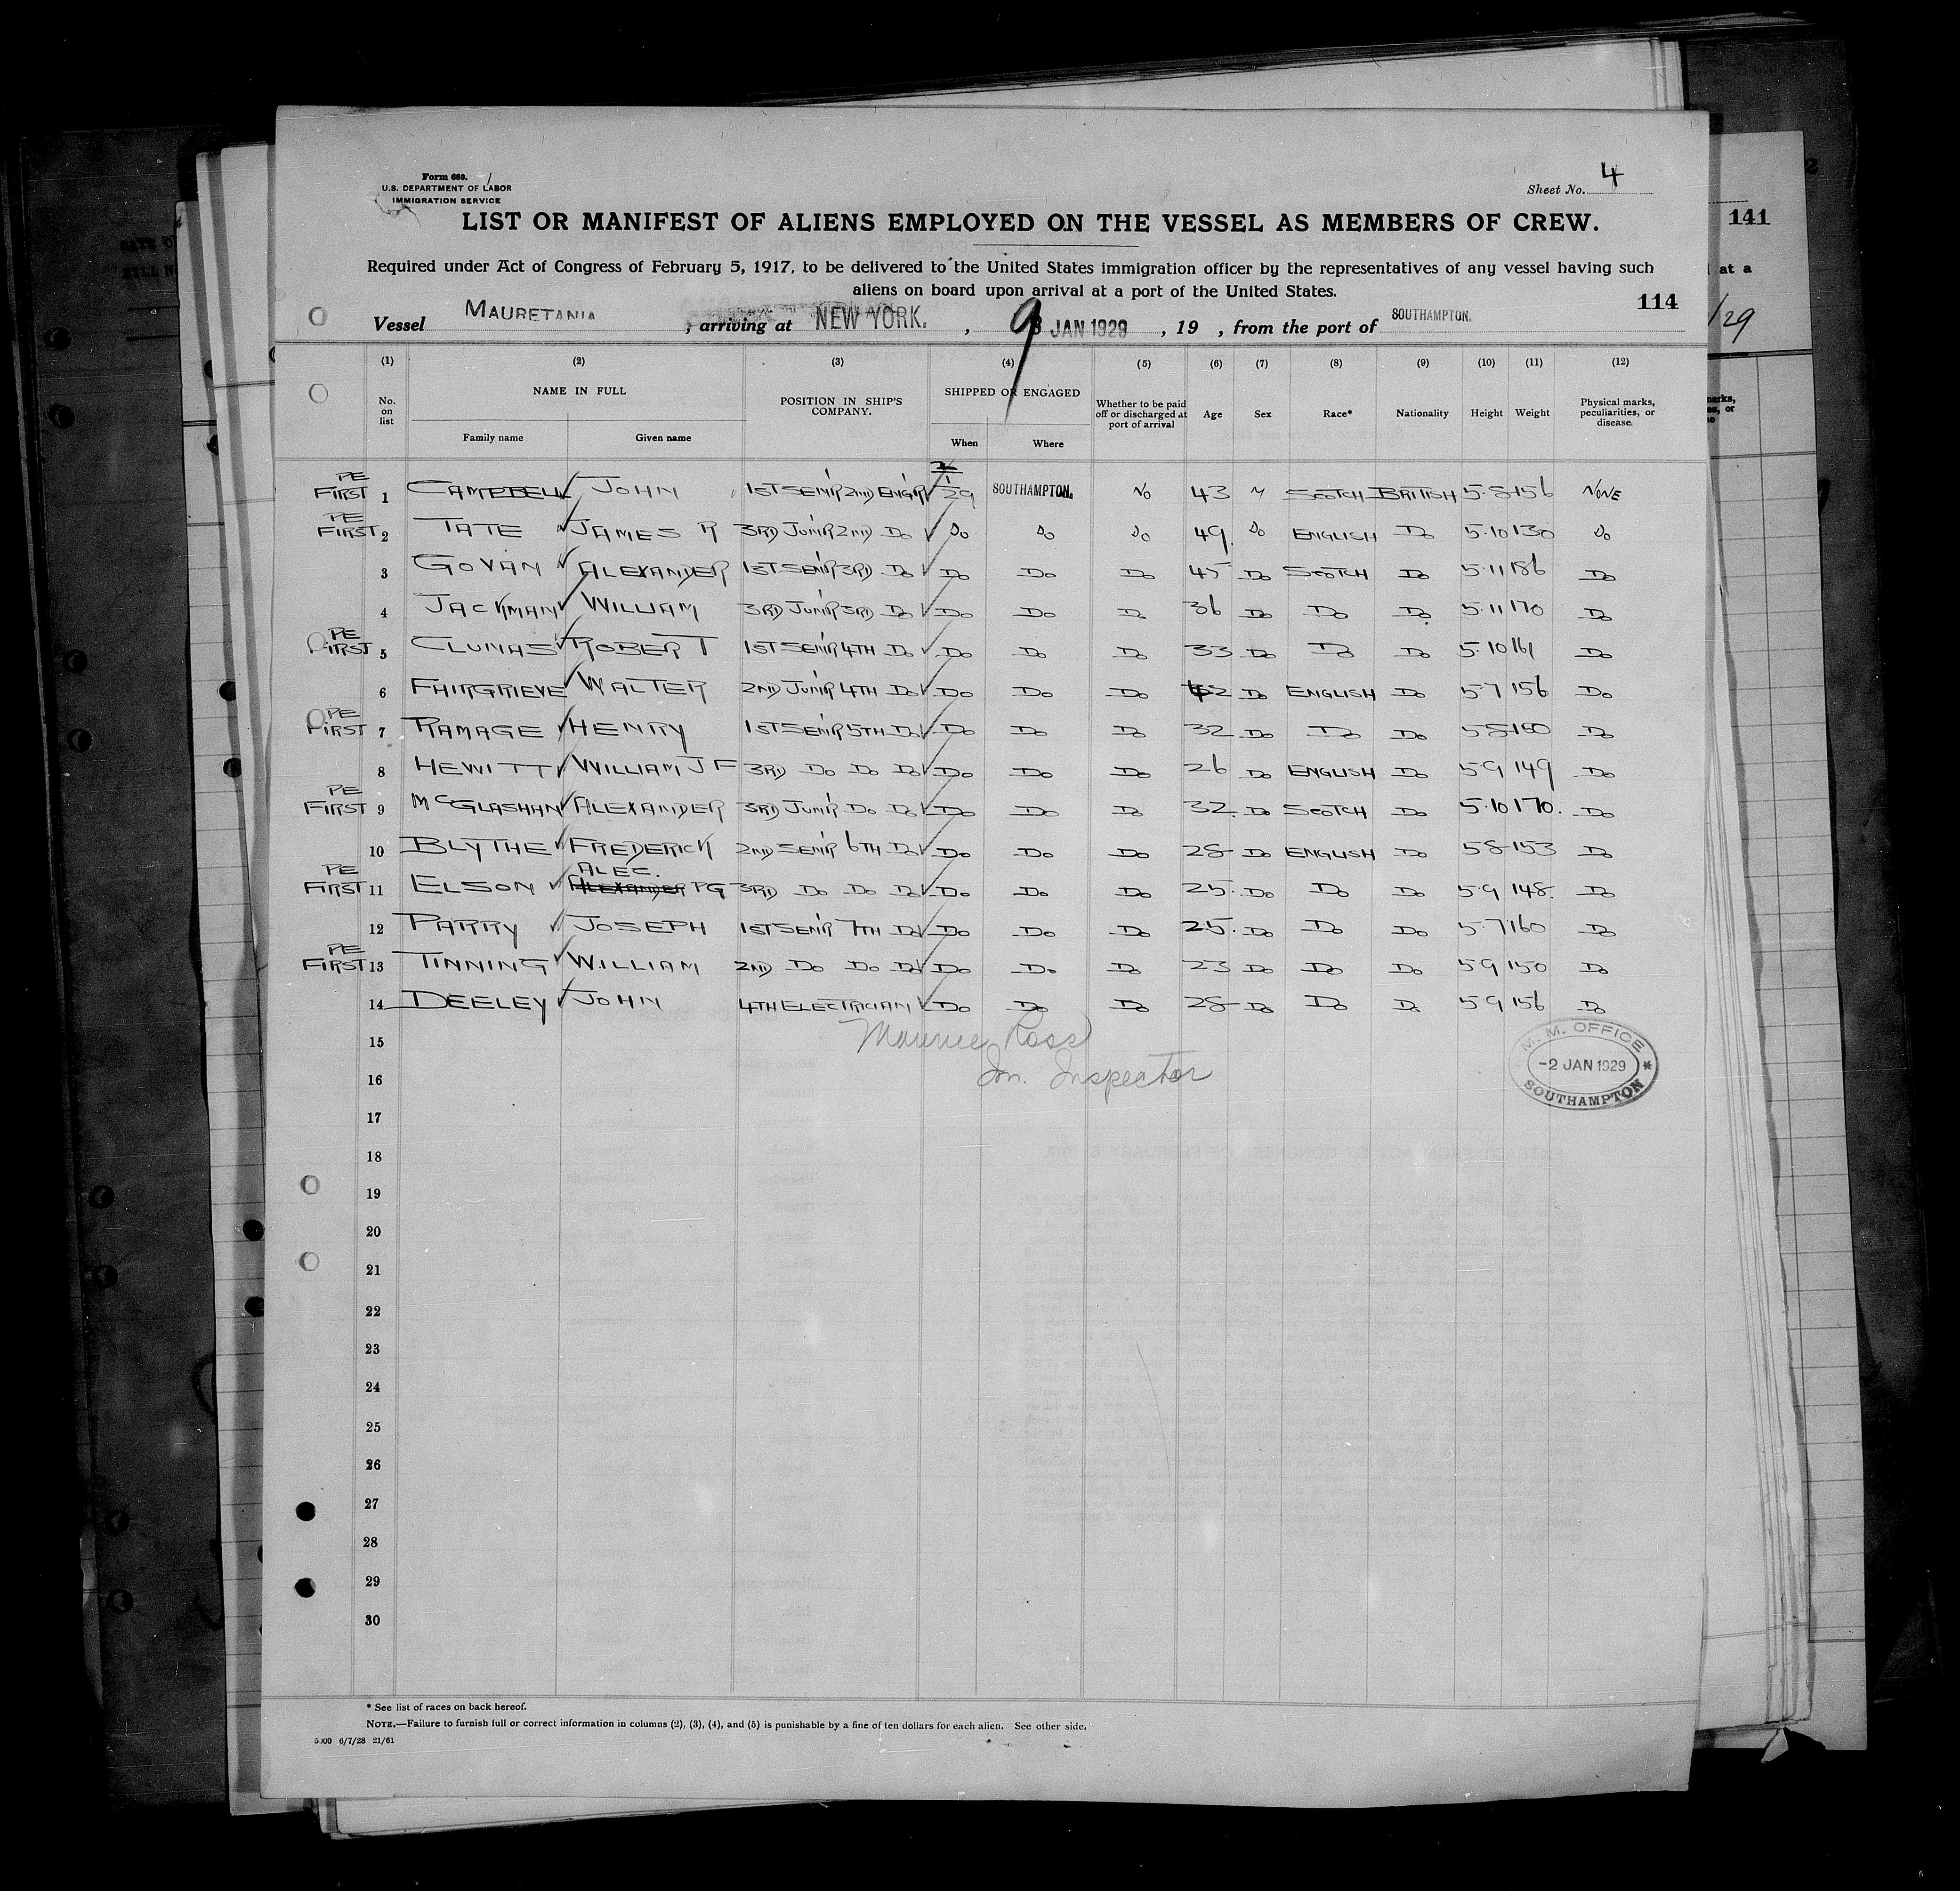 Form 680.
U.S. DEPARTMENT OF LABOR
IMMIGRATION SERVICE
Sheet No. 4
LIST OR MANIFEST OF ALIENS EMPLOYED ON THE VESSEL AS MEMBERS OF CREW.
141
Required under Act of Congress of February 5, 1917, to be delivered to the United States immigration officer by the representatives of any vessel having such
at a
aliens on board upon arrival at a port of the United States.
114
Vessel MAURETANIA, arriving at NEW YORK., 9 JAN 1929, 19 , from the port of SOUTHAMPTON.
/29
(1) (2) (3) (4) (5) (6) (7) (8) (9) (10) (11) (12)
No. on list NAME IN FULL POSITION IN SHIP'S COMPANY. SHIPPED OR ENGAGED Whether to be paid off or discharged at port of arrival Age Sex Race* Nationality Height Weight Physical marks, peculiarities, or disease.
Family name Given name When Where
PE FIRST 1 CAMPBELL JOHN 1ST SENR 2ND ENGR 2/1/29 SOUTHAMPTON. NO 43 M SCOTCH BRITISH 5.8 156 NONE
PE FIRST 2 TATE JAMES R 3RD JUNR 2ND DO DO DO DO 49 DO ENGLISH DO 5.10 130 DO
3 GOVAN ALEXANDER 1ST SENR 3RD DO DO DO DO 45 DO SCOTCH DO 5.11 186 DO
4 JACKMAN WILLIAM 3RD JUNR 3RD DO DO DO DO 36 DO DO DO 5.11 170 DO
PE FIRST 5 CLUNAS ROBERT 1ST SENR 4TH DO DO DO DO 33 DO DO DO 5.10 161 DO
6 FAIRGRIEVE WALTER 2ND JUNR 4TH DO DO DO DO 42 DO ENGLISH DO 5.7 156 DO
PE FIRST 7 RAMAGE HENRY 1ST SENR 5TH DO DO DO DO 32 DO DO DO 5.8 180 DO
8 HEWITT WILLIAM J F 3RD DO DO DO DO DO DO 26 DO ENGLISH DO 5.9 149 DO
PE FIRST 9 MCGLASHAN ALEXANDER 3RD JUNR DO DO DO DO DO 32 DO SCOTCH DO 5.10 170. DO
10 BLYTHE FREDERICK 2ND SENR 6TH DO DO DO DO 28 DO ENGLISH DO 5.8 153 DO
ALEC.
PE FIRST 11 ELSON ALEXANDER P G 3RD DO DO DO DO DO DO 25. DO DO DO 5.9 148. DO
12 PARRY JOSEPH 1ST SENR 7TH DO DO DO DO 25. DO DO DO 5.7 160 DO
PE FIRST 13 TINNING WILLIAM 2ND DO DO DO DO DO DO 23 DO DO DO 5.9 150 DO
14 DEELEY JOHN 4TH ELECTRICIAN DO DO DO 28 DO DO DO 5.9 156 DO
15 Maurice Ross
16 Im. Inspector
M. M. OFFICE
-2 JAN 1929 *
SOUTHAMPTON
17
18
19
20
21
22
23
24
25
26
27
28
29
30
* See list of races on back hereof.
NOTE.—Failure to furnish full or correct information in columns (2), (3), (4), and (5) is punishable by a fine of ten dollars for each alien. See other side.
5000 6/7/28 21/61